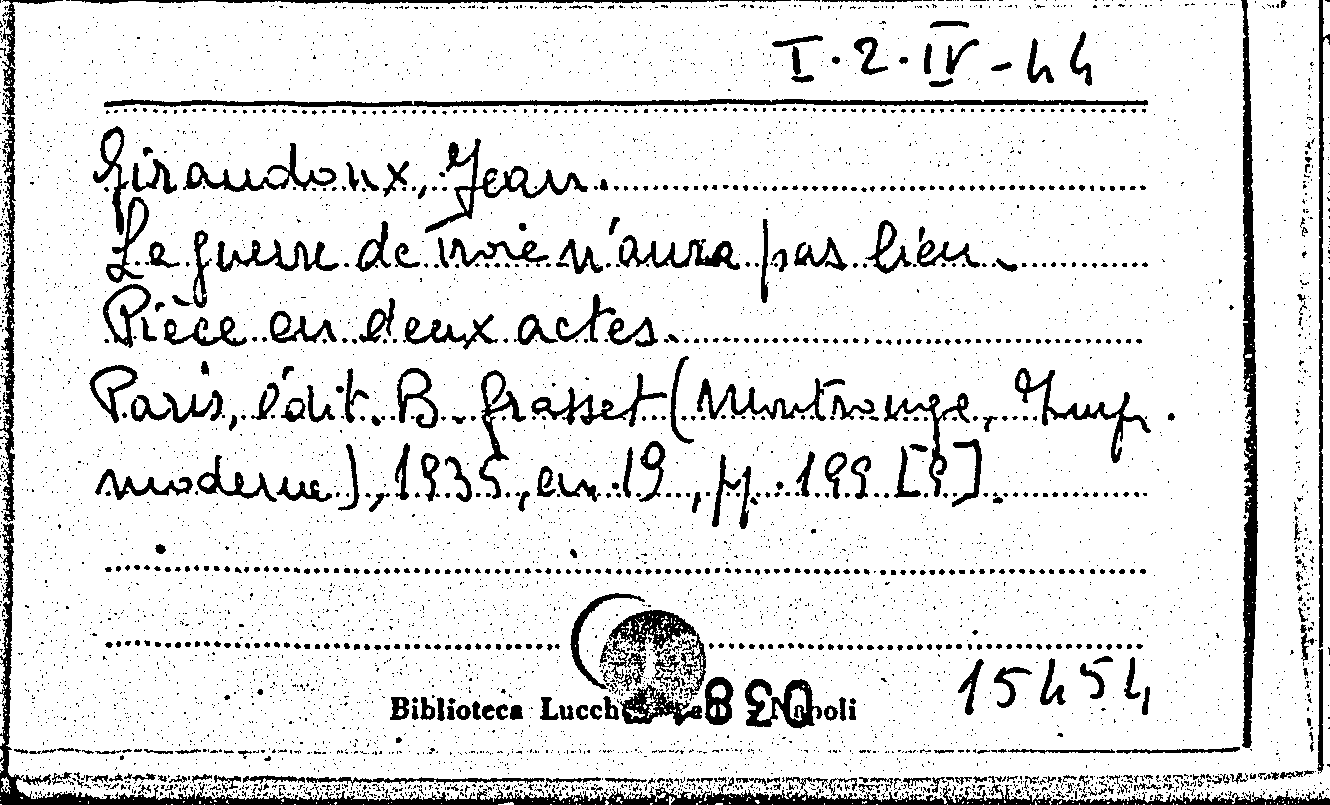 I.2.IV-44
Giraudoux, Jean.
La guerre de Troie n'aura pas lieu.
Pièce en deux actes.
Paris, édit. B. Grasset (Montrouge, Impr.
moderne), 1935, in.19, pp. 199 [9].
15454
Biblioteca Lucch Napoli